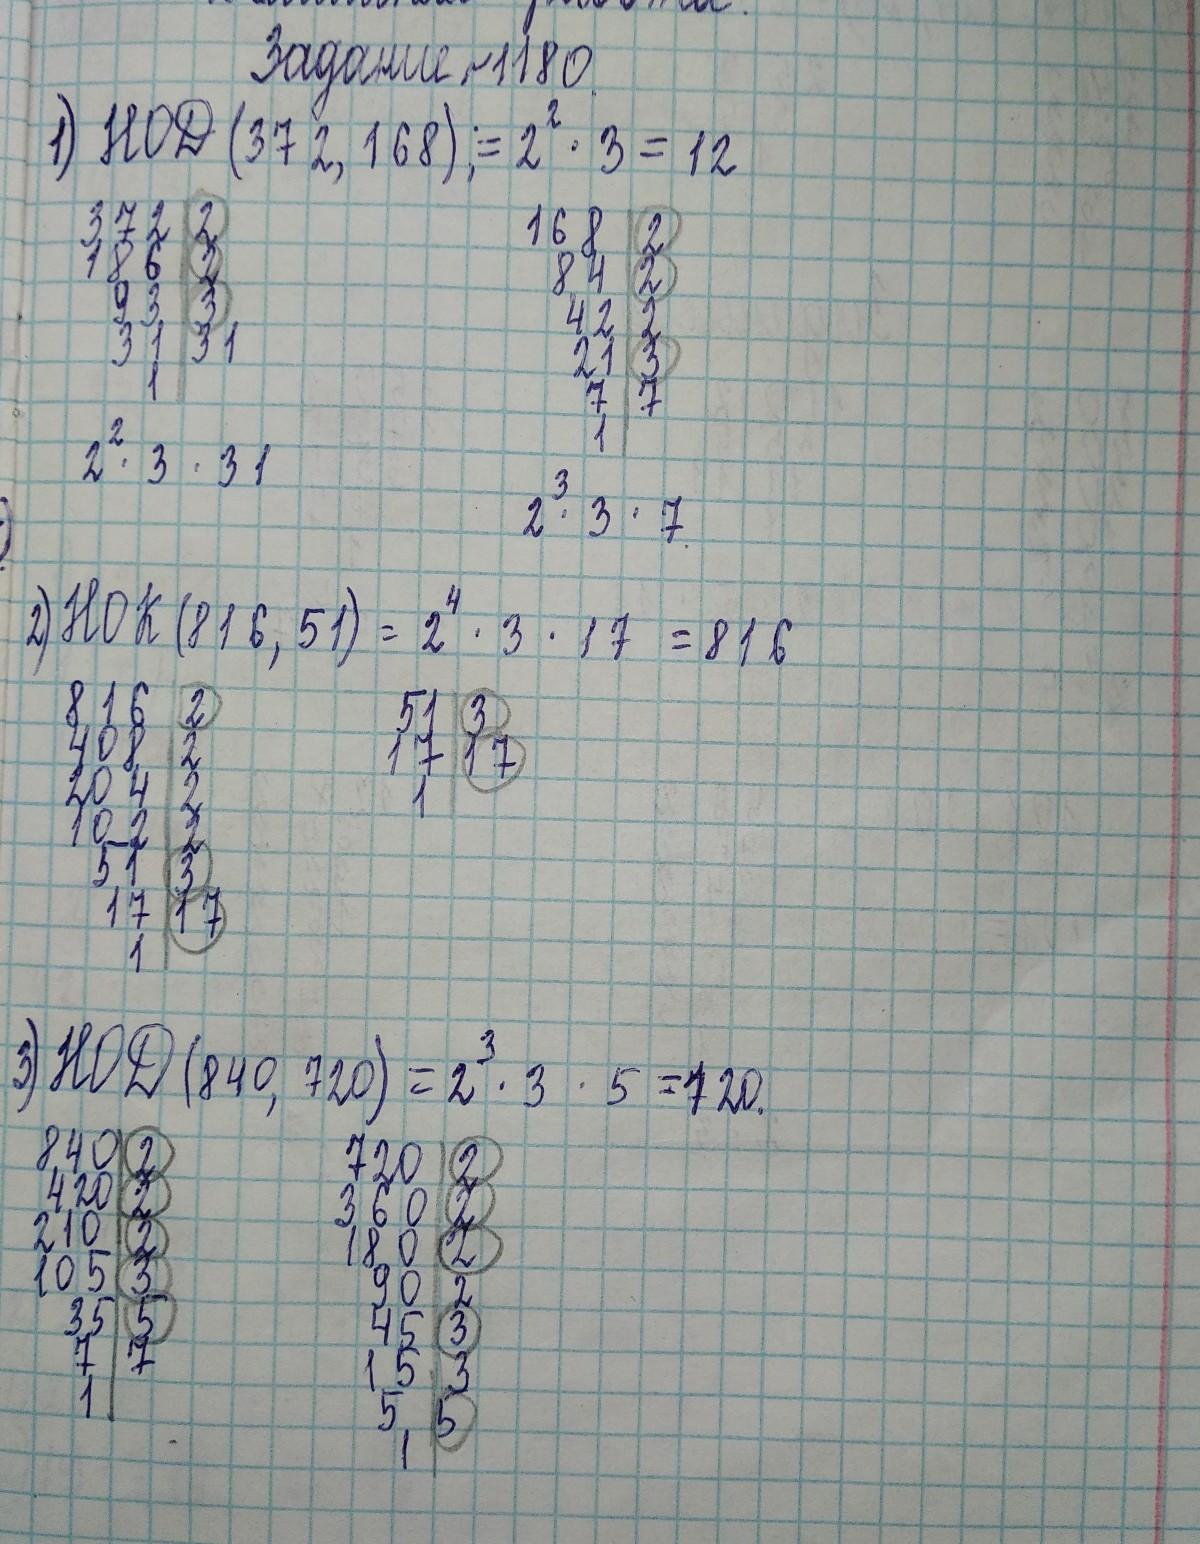 работа.
Задание №1180.
1) НОД (372, 168) = 2² · 3 = 12
372 | 2
186 | 2
93 | 3
31 | 31
1
2² · 3 · 31
168 | 2
84 | 2
42 | 2
21 | 3
7 | 7
1
2³ · 3 · 7.
2) НОК (816, 51) = 2⁴ · 3 · 17 = 816
816 | 2
408 | 2
204 | 2
102 | 2
51 | 3
17 | 17
1
51 | 3
17 | 17
1
3) НОД (840, 720) = 2³ · 3 · 5 = 120.
840 | 2
420 | 2
210 | 2
105 | 3
35 | 5
7 | 7
1
720 | 2
360 | 2
180 | 2
90 | 2
45 | 3
15 | 3
5 | 5
1